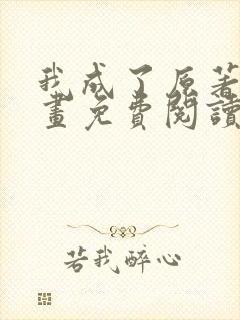 我成了原著
畫免費閱讀
若我醉心